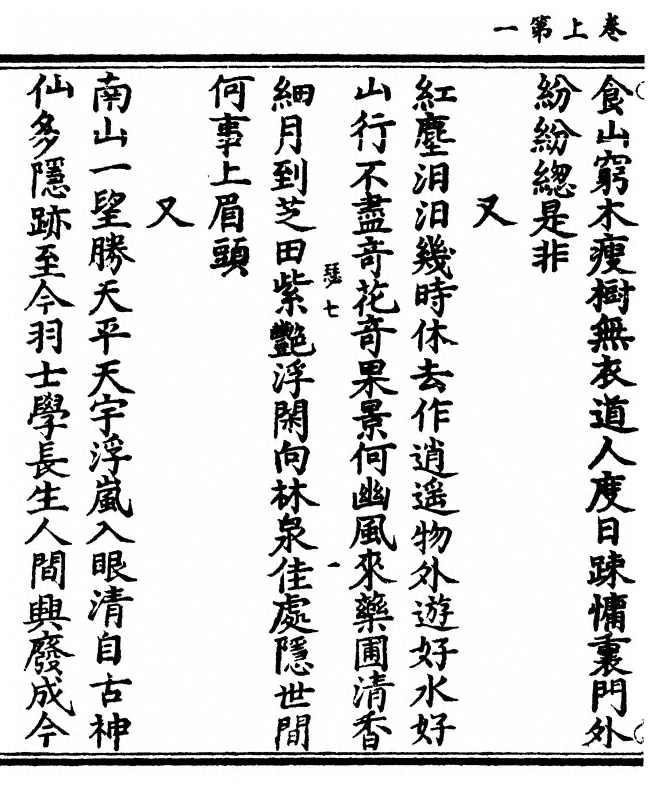 卷上第一
食山窮木瘦樹無衣道人度日踈慵裏門外
紛紛緫是非
又
紅塵汩汩幾時休去作逍遥物外遊好水好
山行不盡竒花竒果景何幽風來藥圃清香
瑟七
細月到芝田紫艷浮閑向林泉佳處隱世間
何事上眉頭
又
南山一望勝天平天宇浮嵐入眼清自古神
仙多隱跡至今羽士學長生人間興廢成今